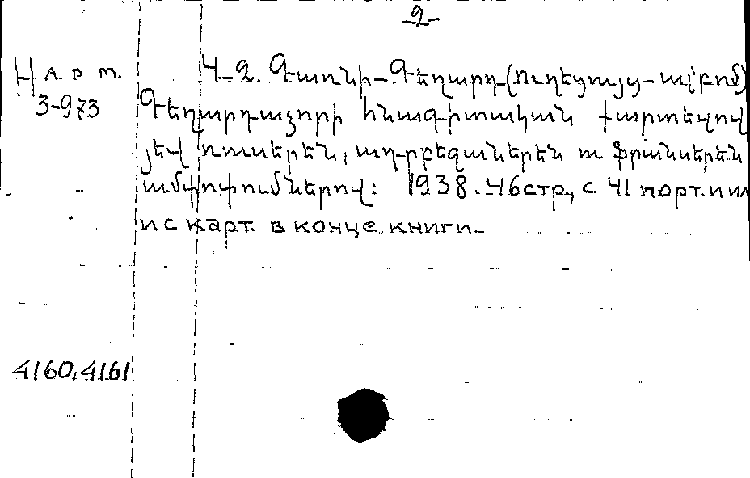 -2-
Ч-2. Գառնի-Գեղարդ (ուղեցույց-ալբոմ)
Н А Р Т.
3-973
Գեղարդաձորի հնագիտական քարտեզով
յեվ ռուսերեն, ադրբեջաներեն ու ֆրանսերեն
ամփոփումներով: 1938. 46стр., с 41 порт. и ил
и с карт. в конце книги.
4160, 4161